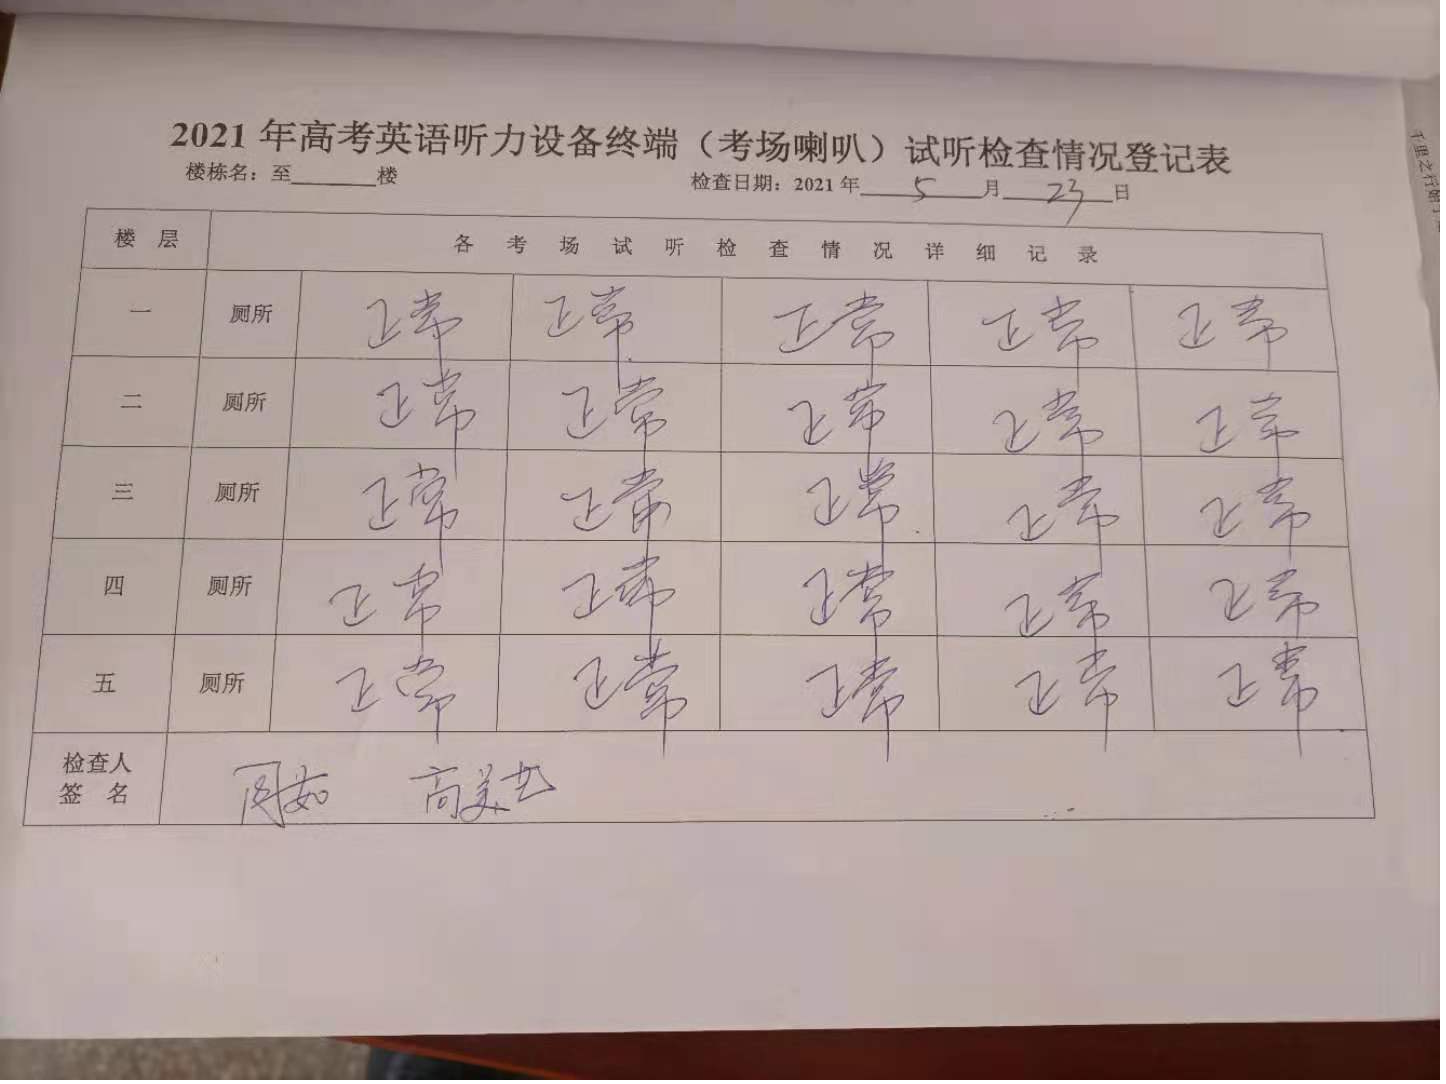 2021 年高考英语听力设备终端（考场喇叭）试听检查情况登记表
楼栋名：至______楼 检查日期：2021 年 5 月 23 日
楼 层 各 考 场 试 听 检 查 情 况 详 细 记 录
一 厕所 正常 正常 正常 正常 正常
二 厕所 正常 正常 正常 正常 正常
三 厕所 正常 正常 正常 正常 正常
四 厕所 正常 正常 正常 正常 正常
五 厕所 正常 正常 正常 正常 正常
检查人
签 名
千里之行始于